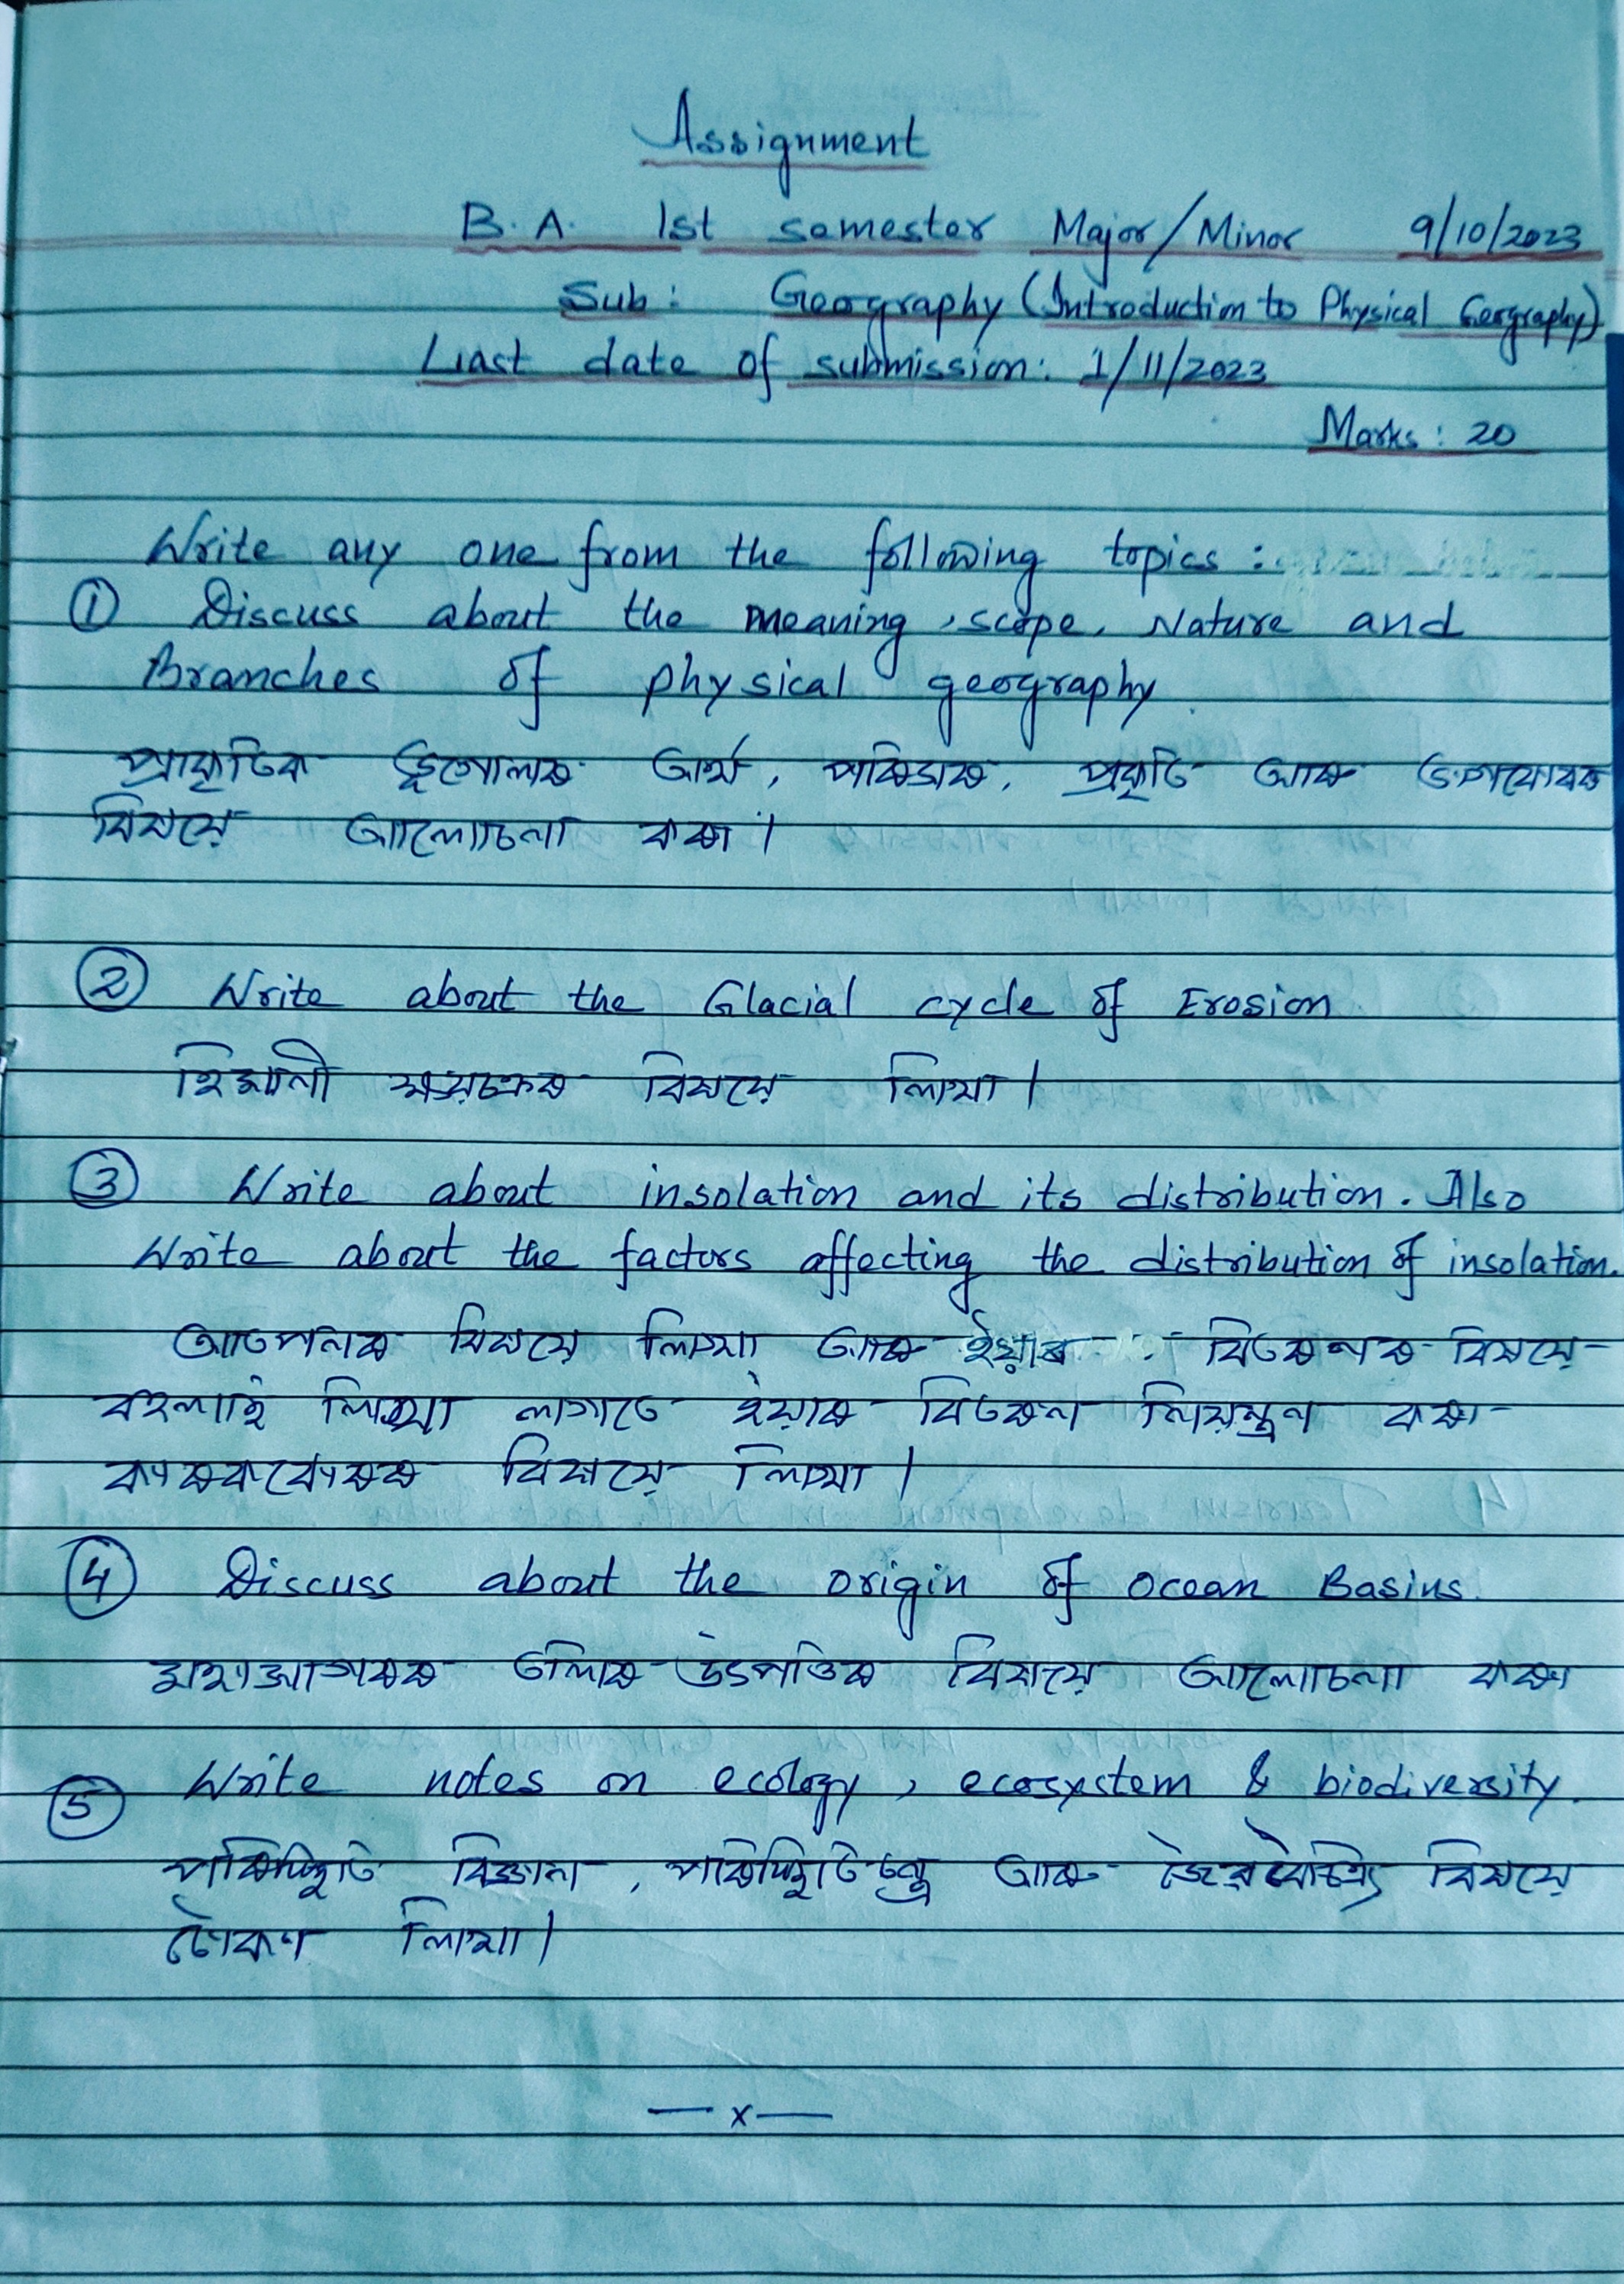 Assignment
B.A. 1st semester Major/Minor 9/10/2023
Sub: Geography (Introduction to Physical Geography)
Last date of submission: 1/11/2023
Marks: 20
Write any one from the following topics :
① Discuss about the meaning, scope, Nature and
Branches of physical geography
প্ৰাকৃতিক ভূগোলৰ অৰ্থ, পৰিসৰ, প্ৰকৃতি আৰু
বিষয়ে আলোচনা কৰা।
② Write about the Glacial cycle of Erosion
হিমানী ক্ষয়চক্ৰৰ বিষয়ে লিখা।
③ Write about insolation and its distribution. Also
Write about the factors affecting the distribution of insolation.
আতপনৰ বিষয়ে লিখা আৰু ইয়াৰ বিতৰণৰ বিষয়ে
বহলাই লিখা লগতে ইয়াৰ বিতৰণ নিয়ন্ত্ৰণ কৰা
কাৰকবোৰৰ বিষয়ে লিখা।
④ Discuss about the origin of ocean Basins.
মহাসাগৰৰ তলিৰ উৎপত্তিৰ বিষয়ে আলোচনা কৰা
⑤ Write notes on ecology, ecosystem & biodiversity.
পৰিস্থিতি বিজ্ঞান, পৰিস্থিতিতন্ত্ৰ আৰু জৈৱবৈচিত্ৰ্য বিষয়ে
টোকা লিখা।
—x—